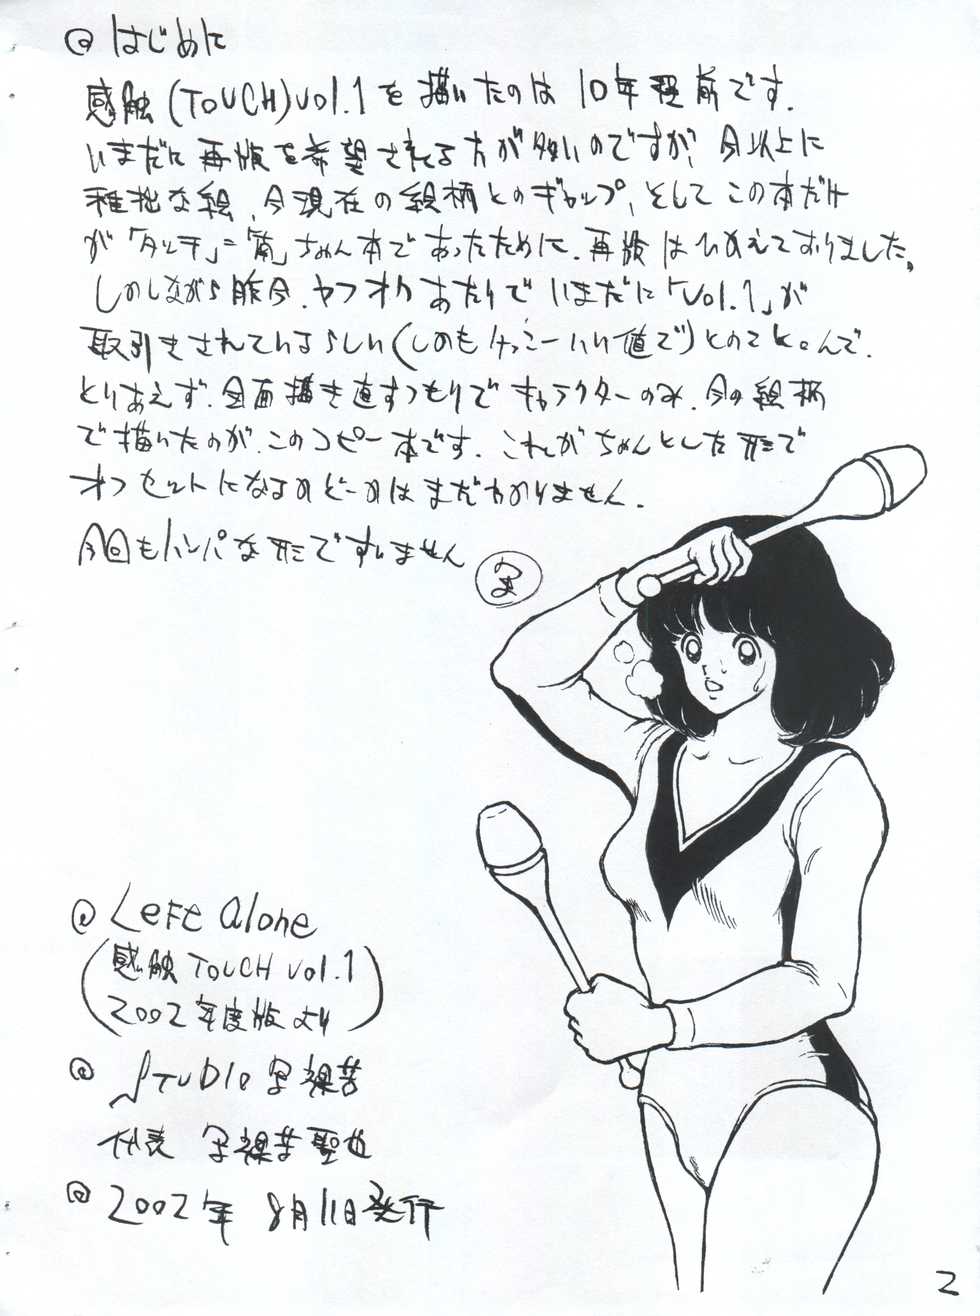 @ はじめに
感触(TOUCH)vol.1を描いたのは10年程前です.
いまだに再版を希望される方が多いのですが、今以上に
稚拙な絵、今現在の絵柄とのギャップ、そしてこの本だけ
が「タッチ」=「南」ちゃん本であったために.再版はひかえておりました。
しかしながら昨今.ヤフオクあたりでいまだに「vol.1」が
取引きされているらしい(しかもけっこーいい値で)とのこと。んで.
とりあえず.全面描き直すつもりでキャラクターのみ.今の絵柄
で描いたのが.このコピー本です.これがちゃんとした形で
オフセットになるかどーかはまだわかりません.
今回もハンパな形ですいません
@ Left alone
(感触 TOUCH vol.1
2002年度版より)
@ STUDIO 写裸苦
代表 写裸苦聖也
@ 2002年 8月11日発行
2